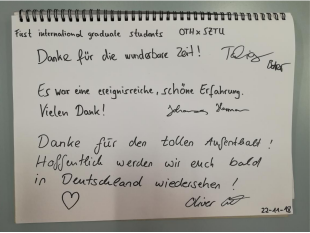 Fast international graduate students OTH x SZTU
Danke für die wunderbare Zeit!
Es war eine ereignisreiche, schöne Erfahrung.
Vielen Dank!
Danke für den tollen Aufenthalt!
Hoffentlich werden wir euch bald
in Deutschland wiedersehen!
Oliver
22-11-18